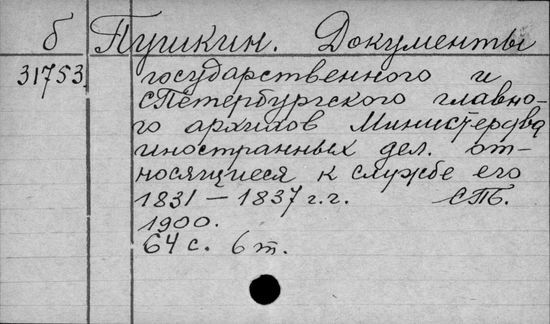 б Пушкин. Документы
31753 государственного и
СПетербургского главно-
го архивов Министерства
иностранных дел. от-
носящиеся к службе его
1831 — 1837 г.г. СПБ.
1900.
64 с. 6 т.